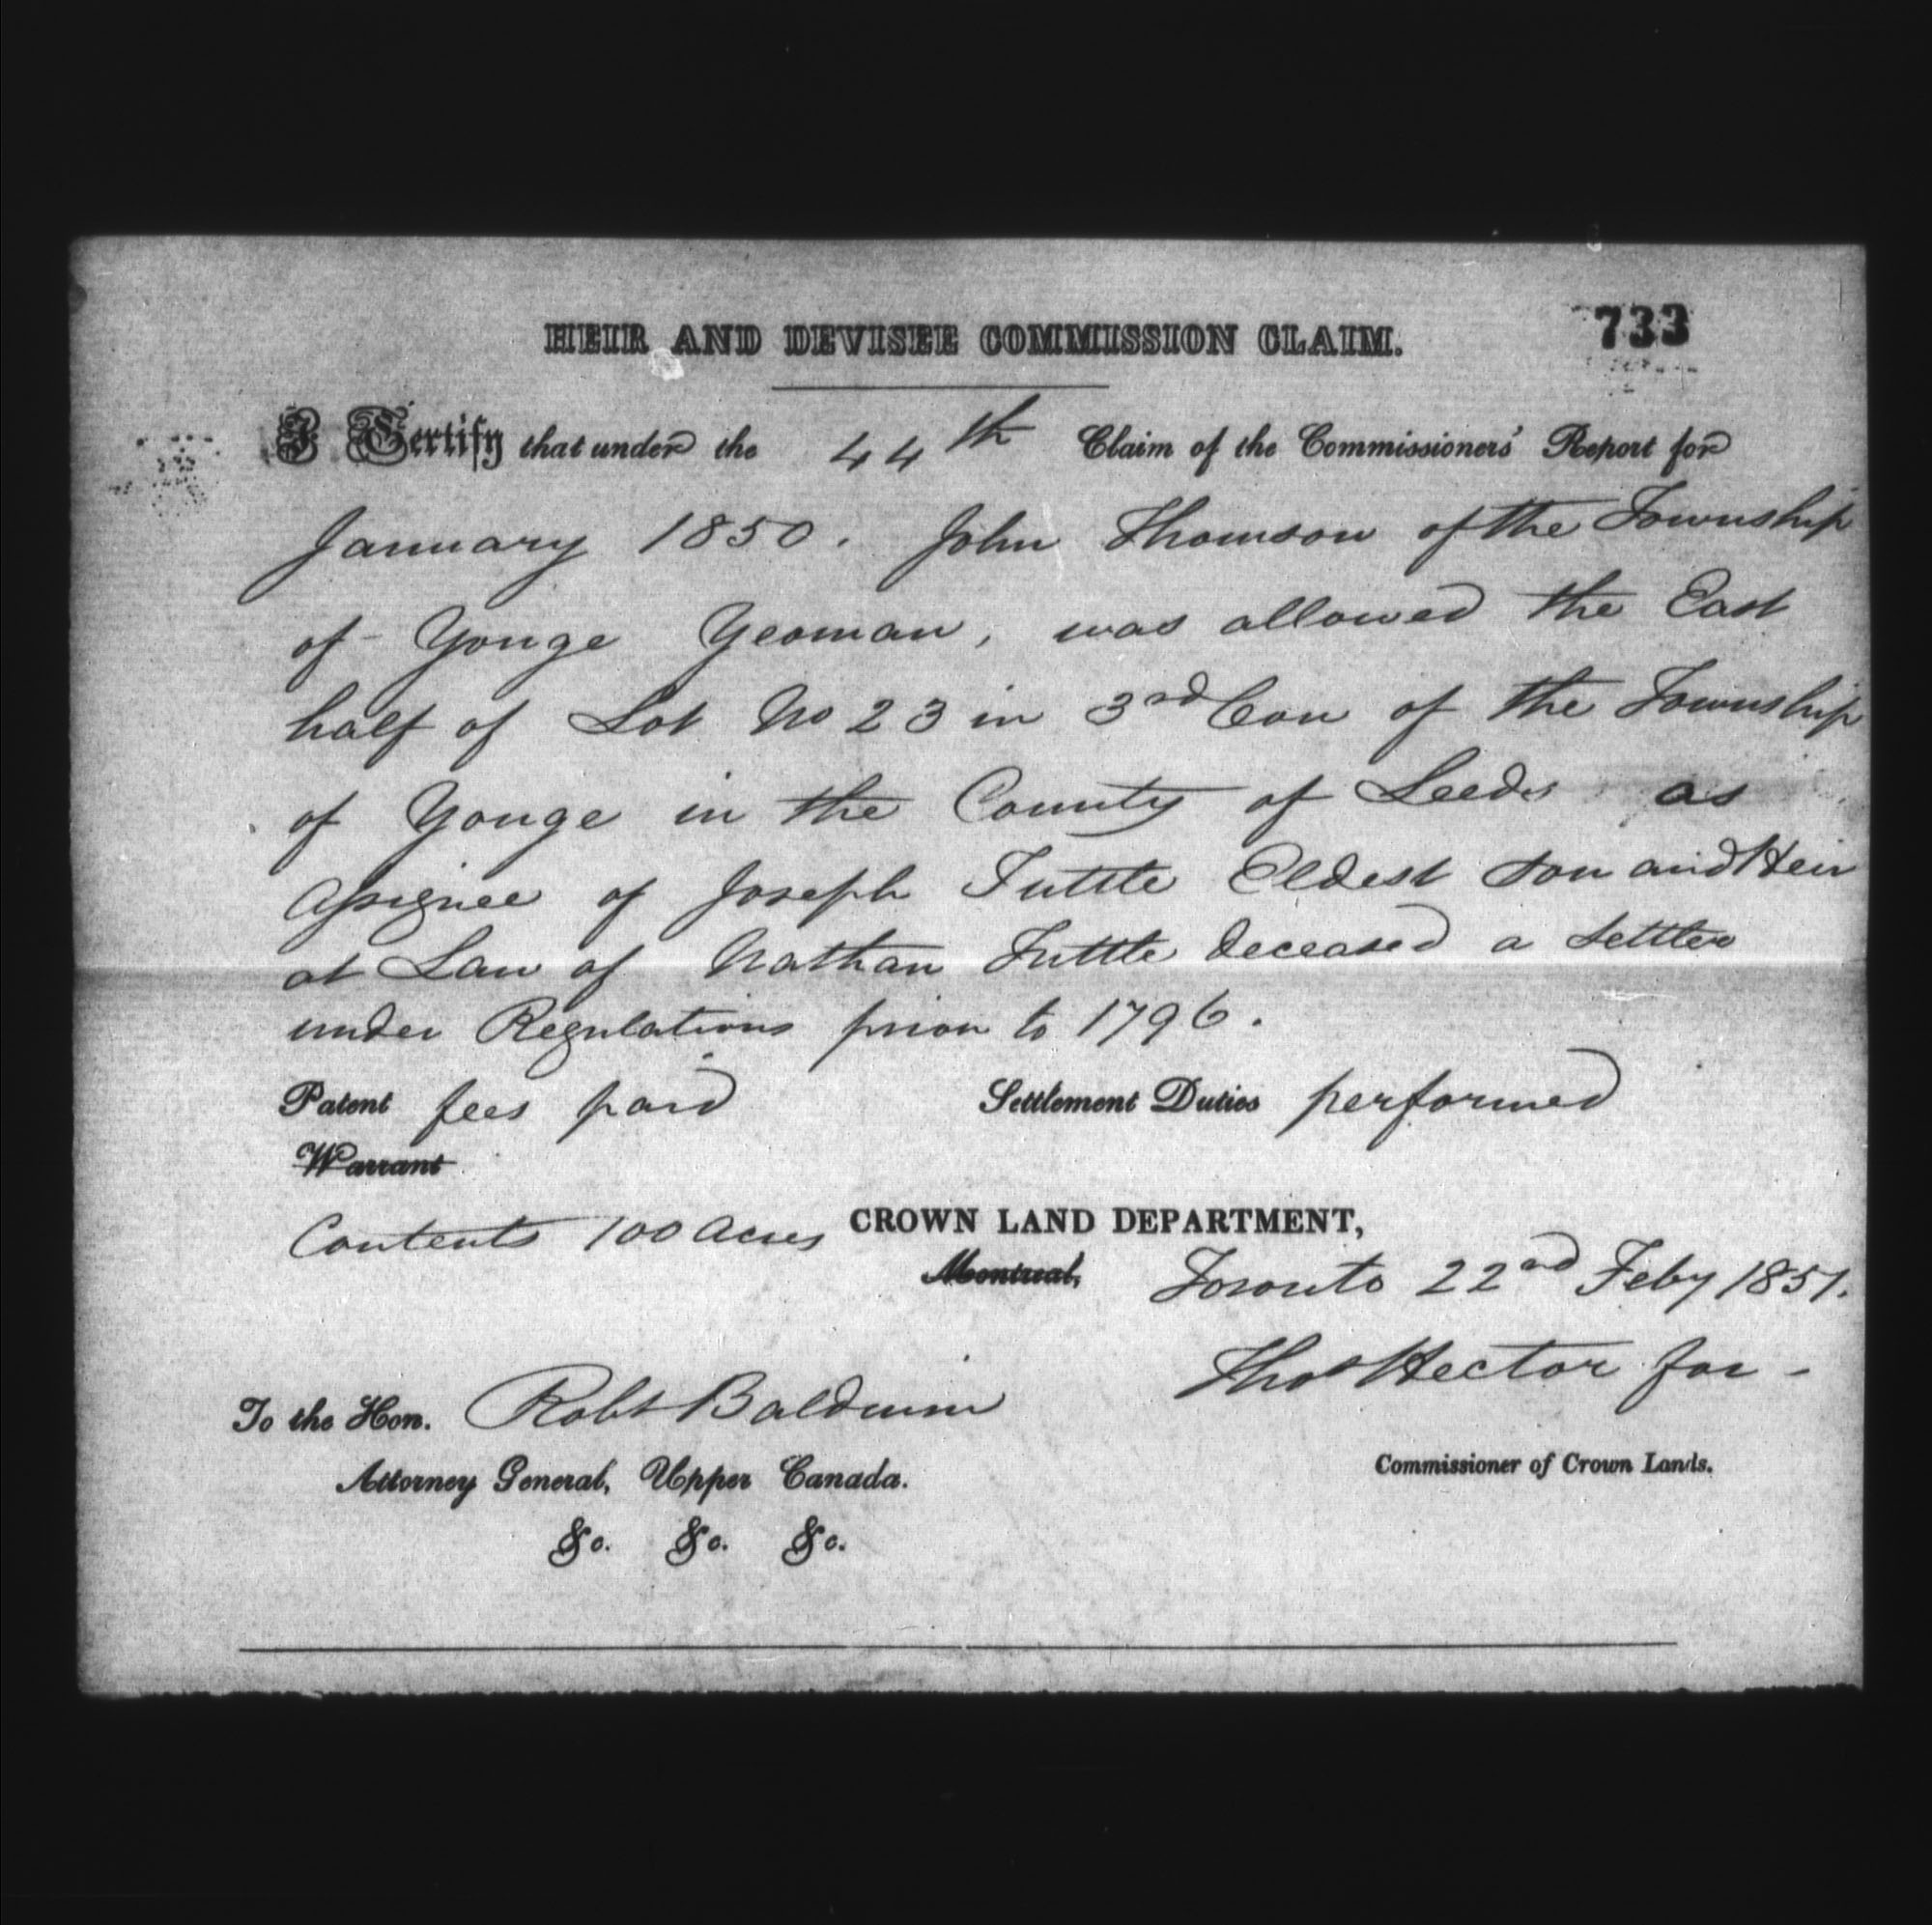 HEIR AND DEVISEE COMMISSION CLAIM.
733
I Certify that under the 44th Claim of the Commissioners' Report for
January 1850. John Thomson of the Township
of Yonge Yeoman, was allowed the East
half of Lot No 23 in 3rd Con of the Township
of Yonge in the County of Leeds as
Assignee of Joseph Tuttle Eldest son and Heir
at Law of Nathan Tuttle deceased a settler
under Regulations prior to 1796.
Patent fees paid Settlement Duties performed
Warrant
Contents 100 Acres CROWN LAND DEPARTMENT,
Montreal, Toronto 22nd Feby 1851.
Thos Hector for -
To the Hon. Robt Baldwin
Commissioner of Crown Lands.
Attorney General, Upper Canada.
&c. &c. &c.